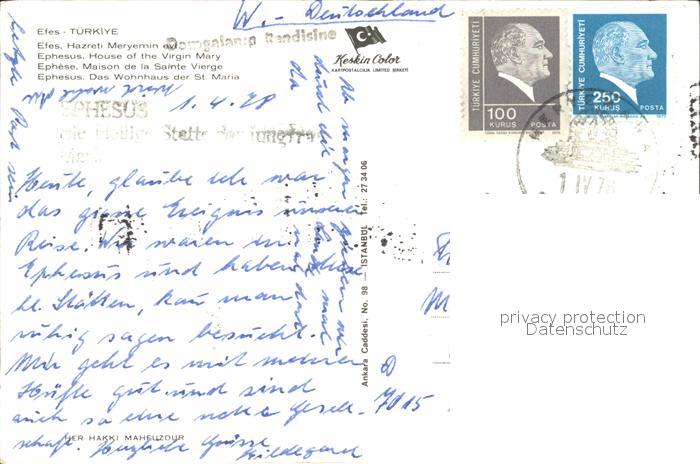 W. - Deutschland
Efes - TÜRKİYE
Efes, Hazreti Meryemin evi
Ephesus, House of the Virgin Mary
Ephèse, Maison de la Sainte Vierge
Ephesus, Das Wohnhaus der St. Maria
Damgalanıp Kendisine
Keskin Color
KARTPOSTALCILIK LIMITED ŞIRKETI
TÜRKİYE CUMHURİYETİ
100
KURUŞ
POSTA
TÜRKİYE CUMHURİYETİ
250
KURUŞ
POSTA
1 IV 78
1. 4. 78
EPHESUS
die Heilige Stette der Jungfrau
Heute, glaube ich war
das grosse Ereignis unserer
Reise. Wir waren in
Ephesus und haben diese
hl. Stätten, kan man
ruhig sagen besucht.
Mir geht es mit meiner
Hüfte gut und sind
auch so eine nette Gesell-
schaft. Herzliche Grüsse
Hildegard
HER HAKKI MAHFUZDUR
Ankara Caddesi, No. 98 — İSTANBUL Tel.: 27 34 06
D
7015
privacy protection
Datenschutz